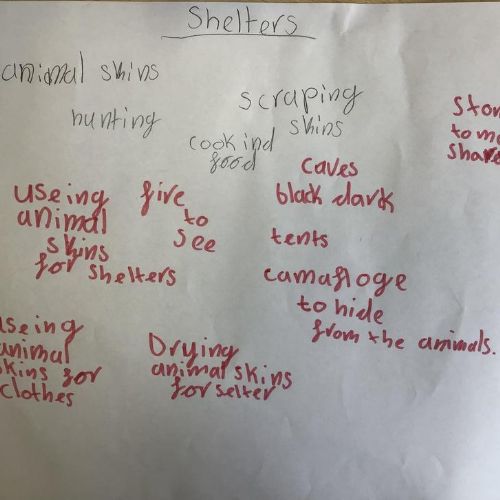 Shelters
animal skins
hunting
scraping
skins
cookind
food
useing
animal
skins
for shelters
five
to
see
caves
black dark
tents
camafloge
to hide
from the animals.
useing
animal
skins for
clothes
Drying
animal skins
for selter